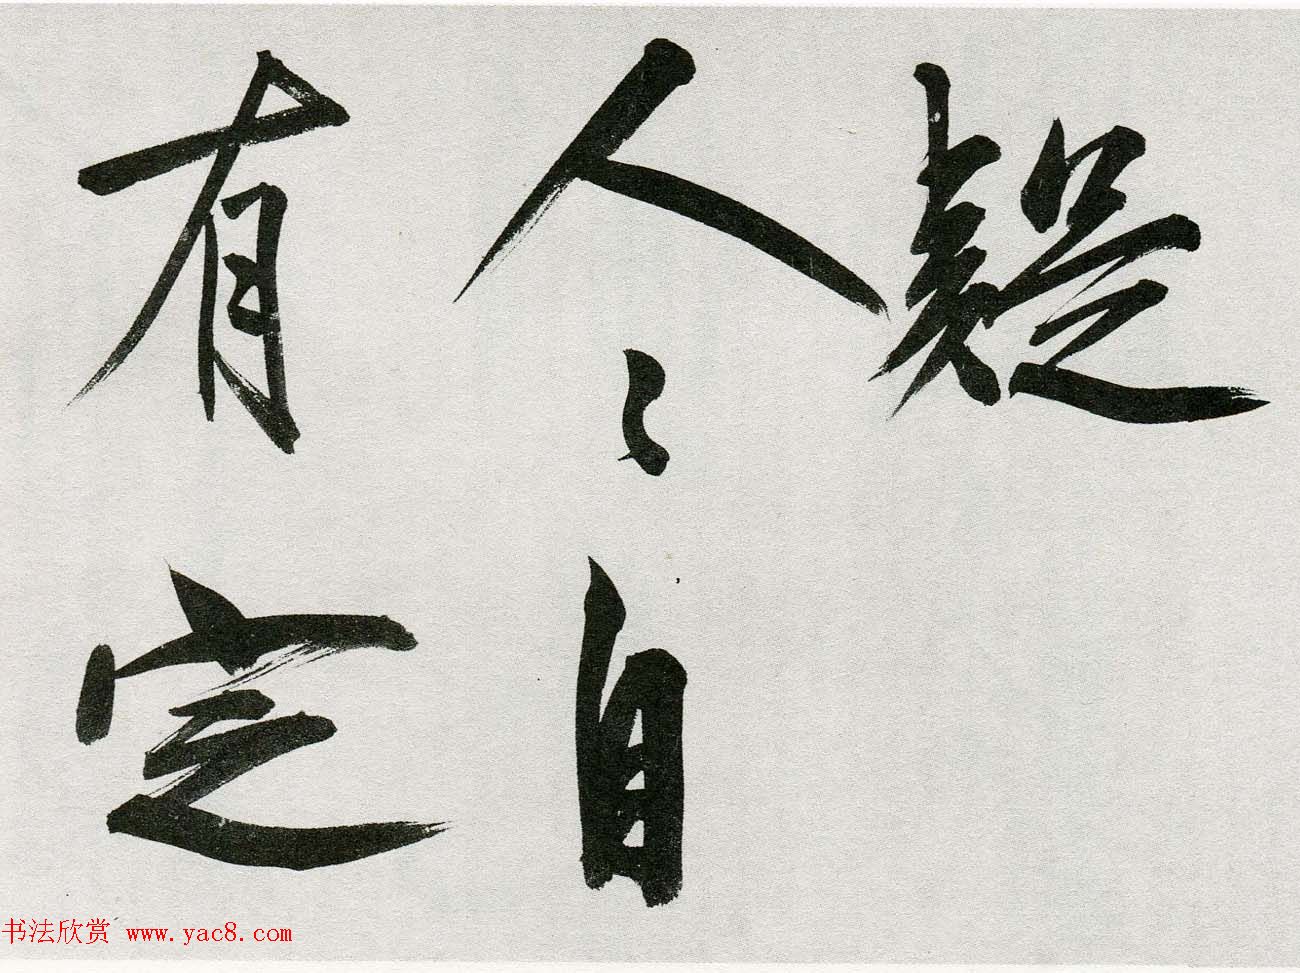 疑
人〻自
有定
书法欣赏 www.yac8.com